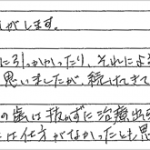 がします。
に引っかかったり、それによ
思いましたが、続けてきて
の歯は抜かずに治療出
は仕方がなかったとも思